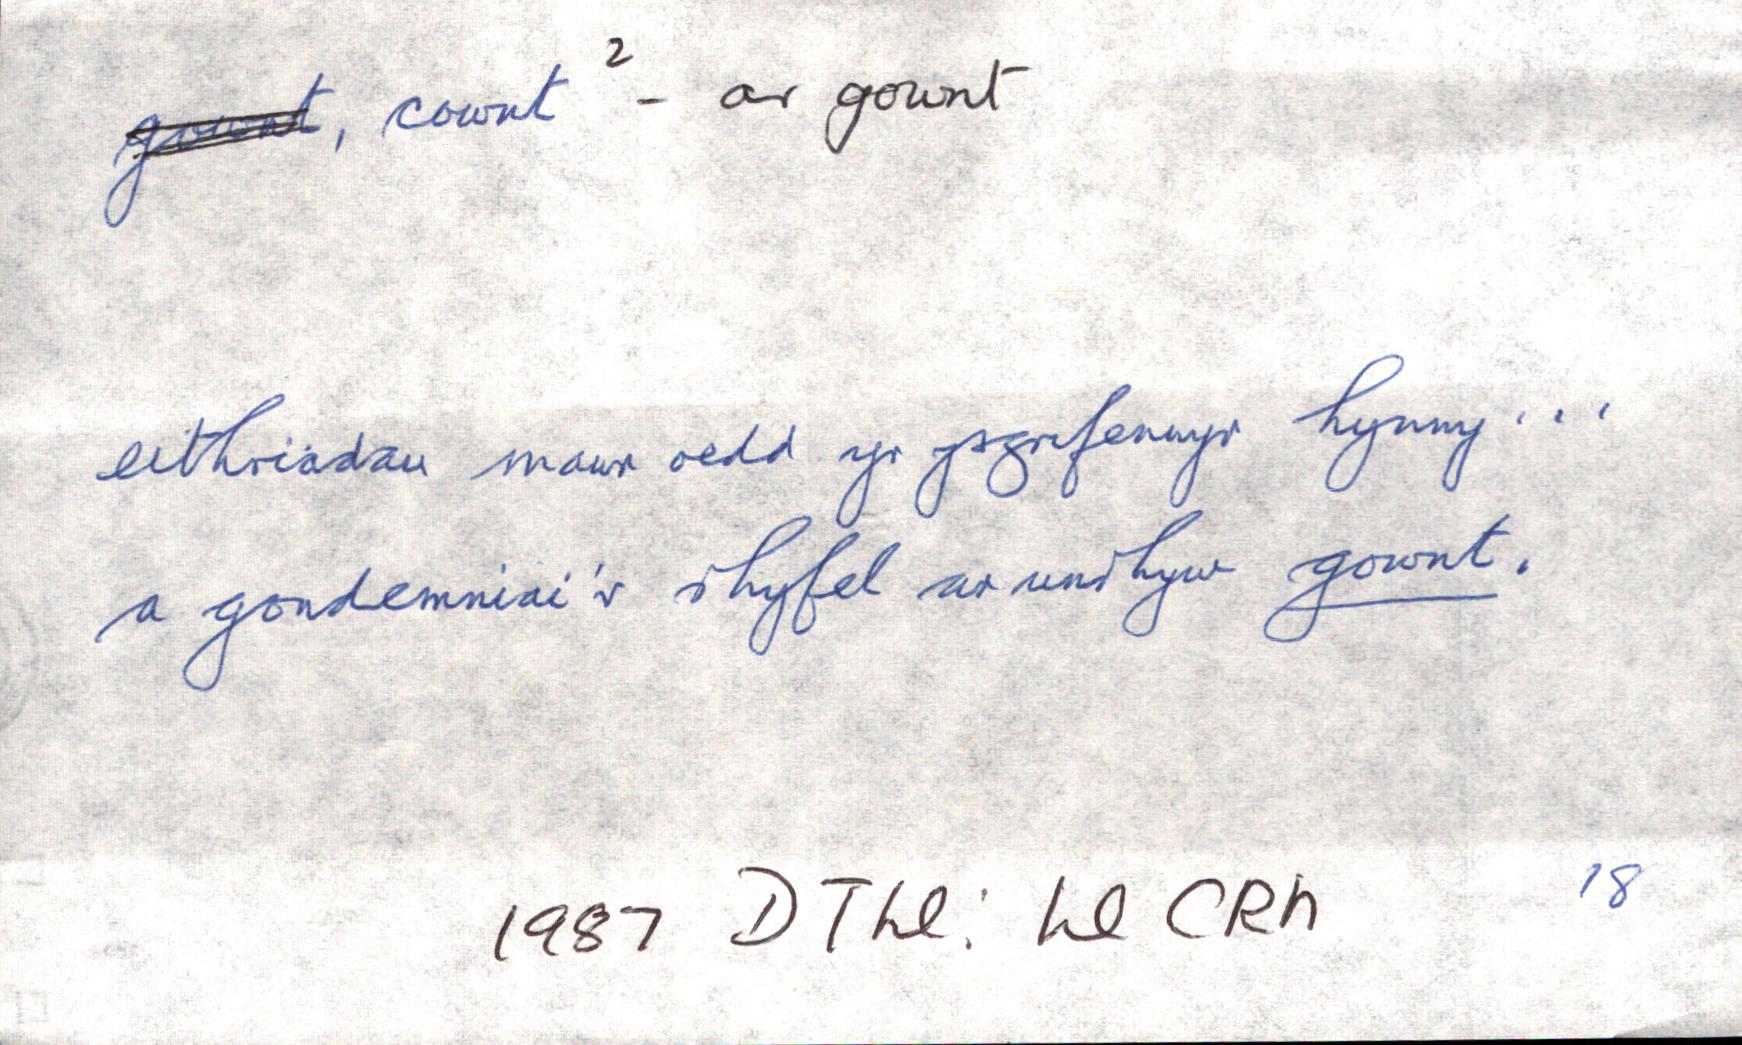 gownt, cownt ² - ar gownt
eithriadau mawr oedd yr ysgrifenwyr hynny...
a gondemniai'r rhyfel ar unrhyw gownt.
1987 D Thl: hl CRh 18